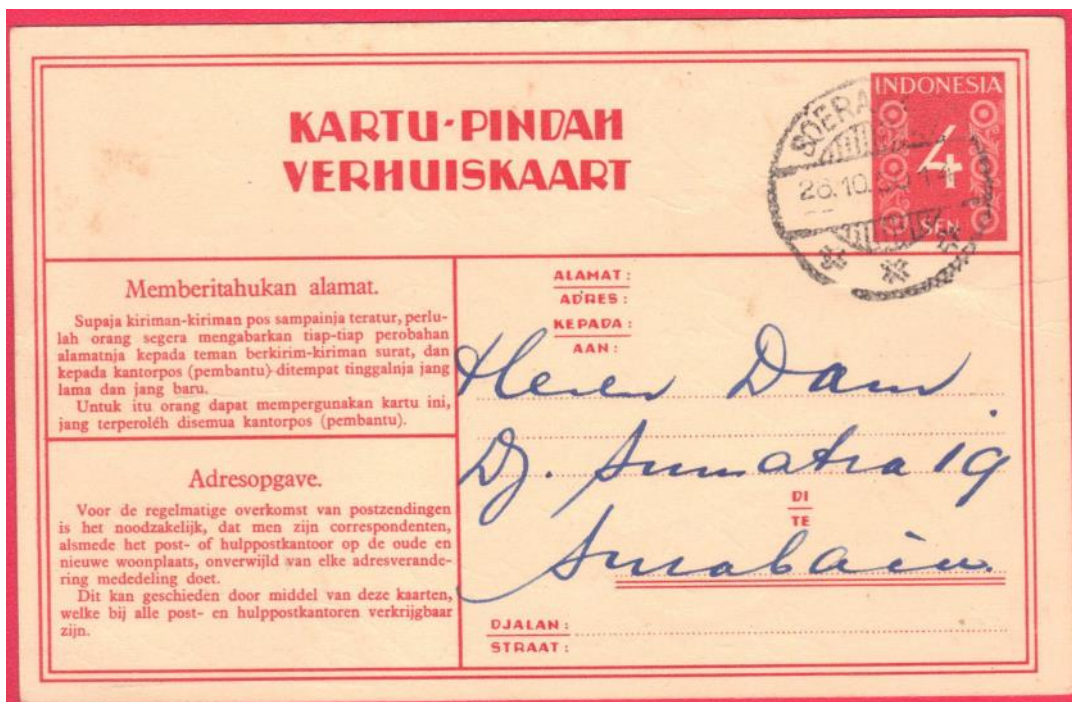 KARTU-PINDAH
VERHUISKAART
INDONESIA
4
SEN
SOERA
Memberitahukan alamat.
Supaja kiriman-kiriman pos sampainja teratur, perlu-
lah orang segera mengabarkan tiap-tiap perobahan
alamatnja kepada teman berkirim-kiriman surat, dan
kepada kantorpos (pembantu) ditempat tinggalnja jang
lama dan jang baru.
Untuk itu orang dapat mempergunakan kartu ini,
jang terperoléh disemua kantorpos (pembantu).
Adresopgave.
Voor de regelmatige overkomst van postzendingen
is het noodzakelijk, dat men zijn correspondenten,
alsmede het post- of hulppostkantoor op de oude en
nieuwe woonplaats, onverwijld van elke adresverande-
ring mededeling doet.
Dit kan geschieden door middel van deze kaarten,
welke bij alle post- en hulppostkantoren verkrijgbaar
zijn.
ALAMAT:
ADRES:
KEPADA:
AAN:
Heren Dam
Dj. Sumatra 19
DI
TE
Surabaia.
DJALAN:
STRAAT: